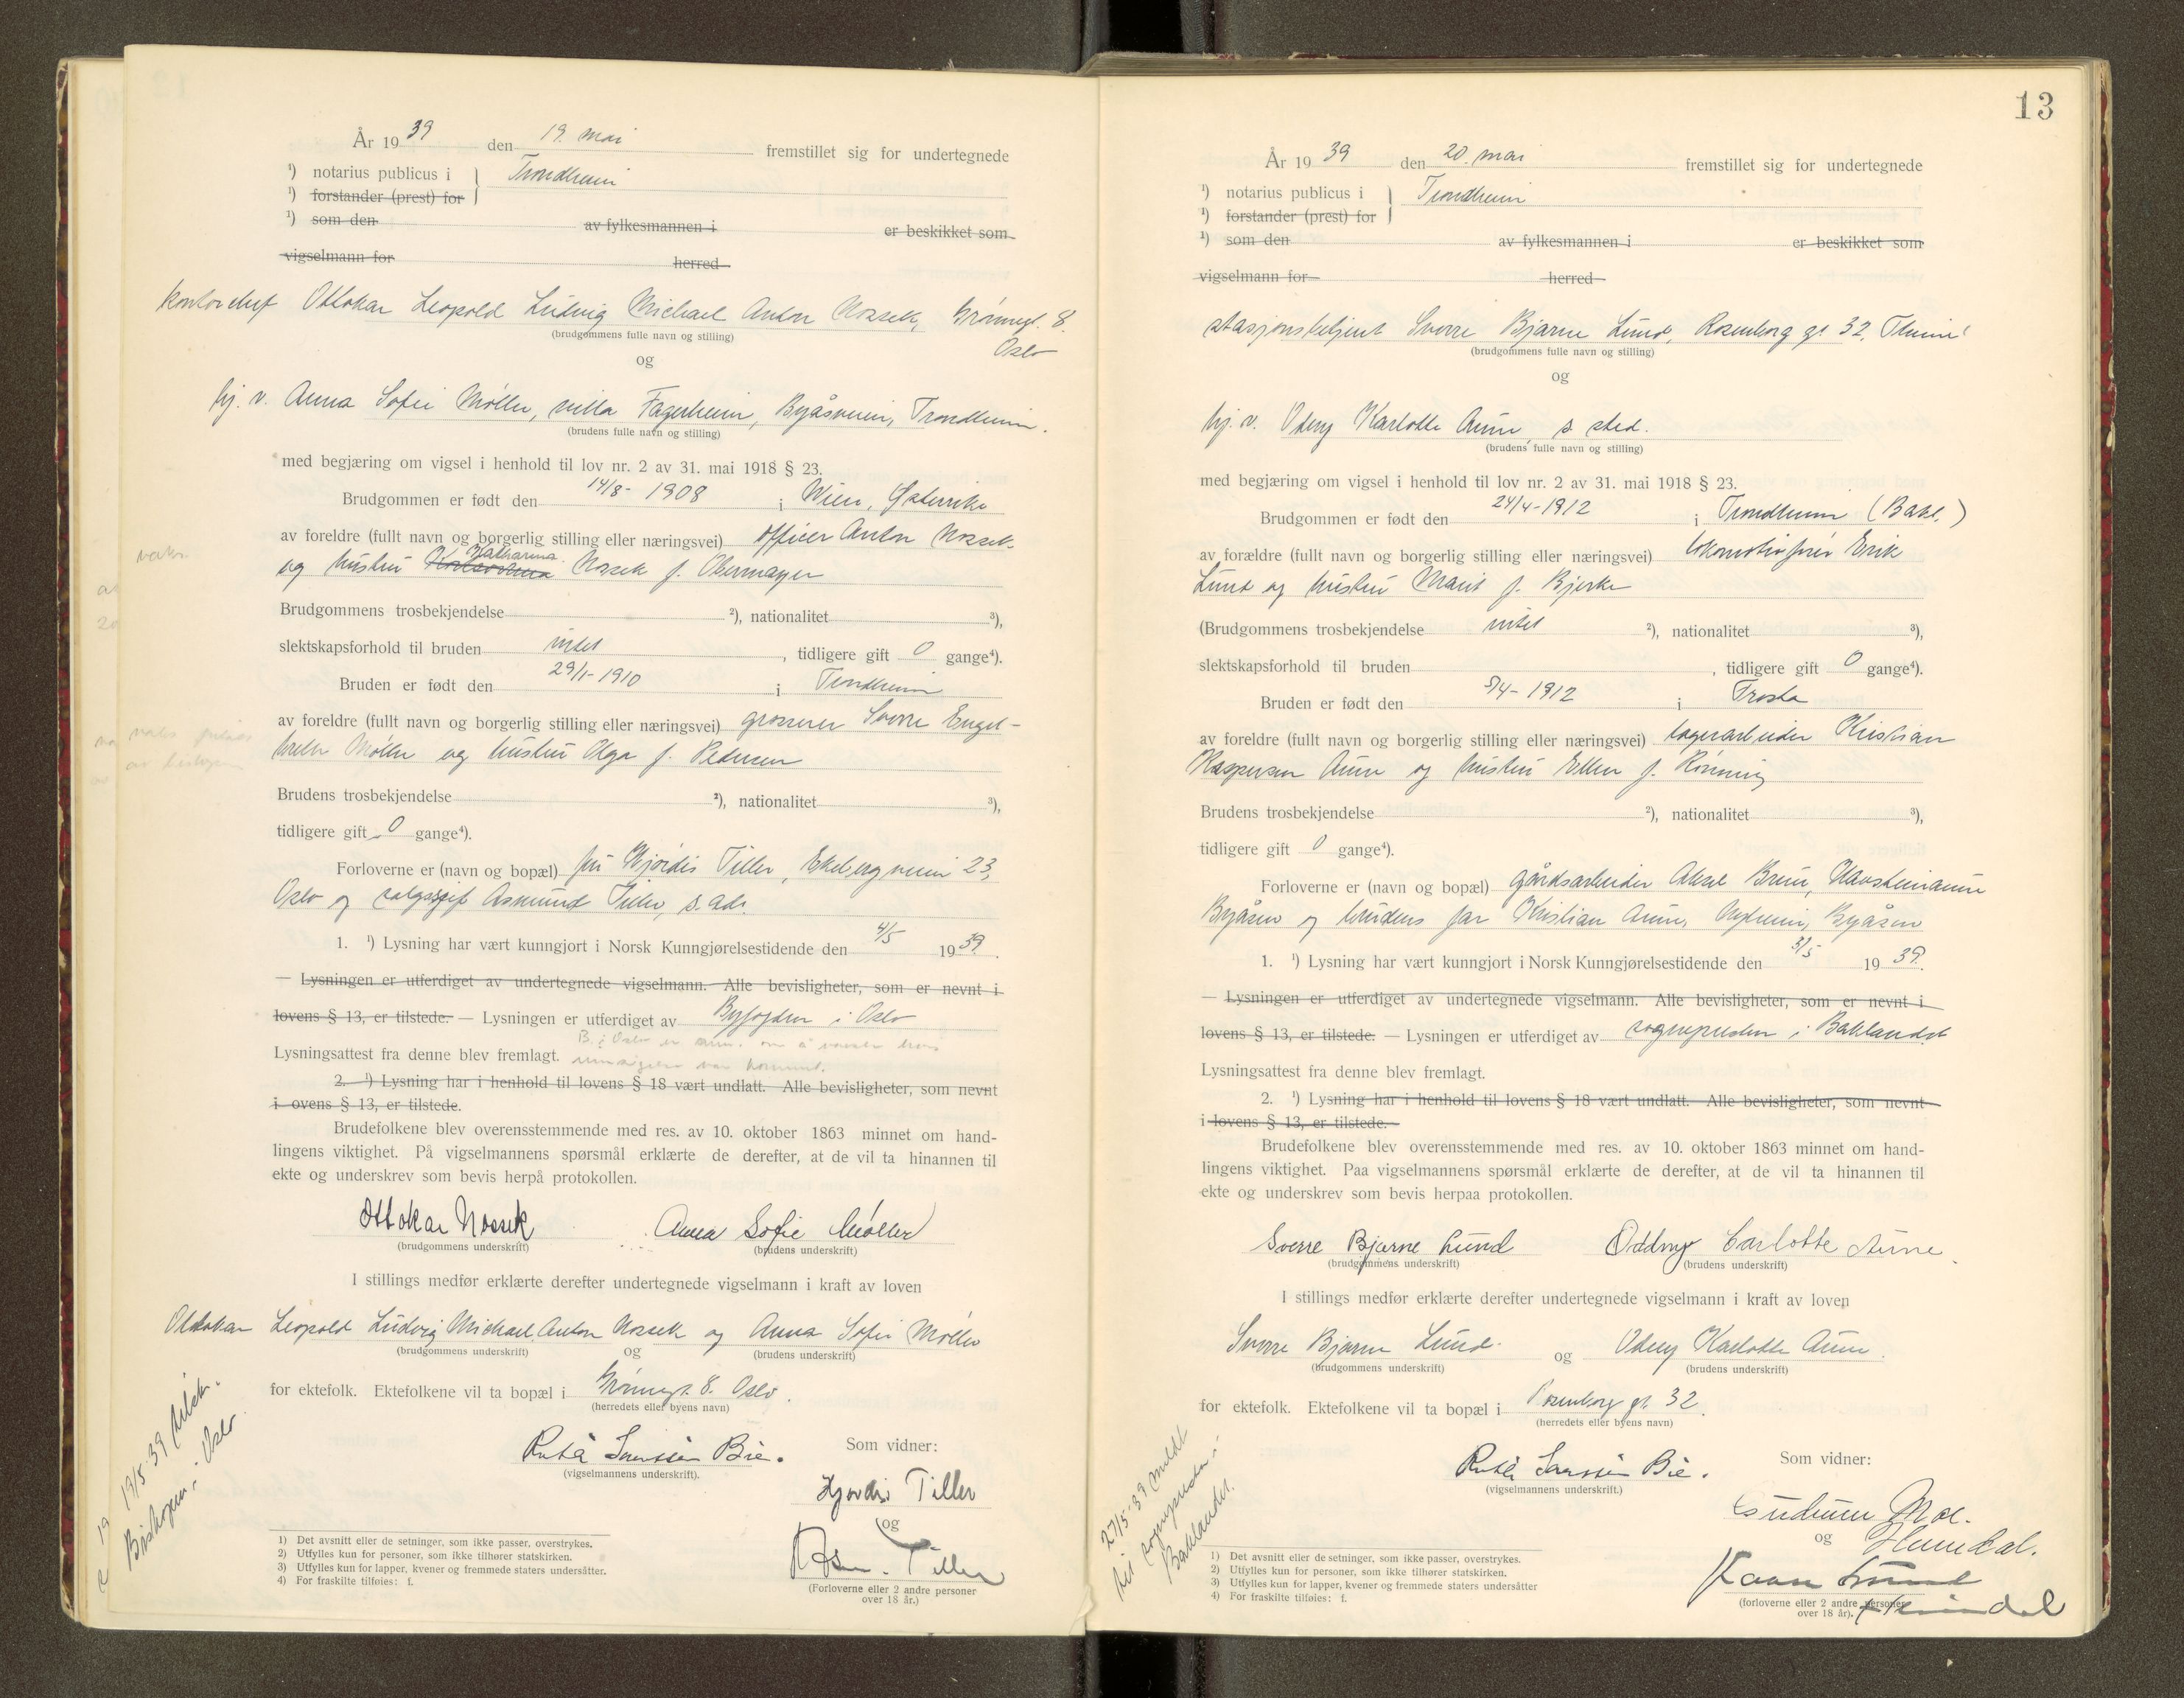 År 1939 den 19. mai fremstillet sig for undertegnede
¹) notarius publicus i } Trondheim
¹) forstander (prest) for
¹) som den av fylkesmannen i er beskikket som
vigselmann for herred
kontorchef Ottokar Leopold Ludvig Michael Anton Nossek, Grønnegt. 8.
(brudgommens fulle navn og stilling)
Oslo
og
hj. v. Anna Sofie Møller, villa Fagerheim, Byåsveien, Trondheim.
(brudens fulle navn og stilling)
med begjæring om vigsel i henhold til lov nr. 2 av 31. mai 1918 § 23.
Brudgommen er født den 14/8-1908 i Wien, Østerrike
av foreldre (fullt navn og borgerlig stilling eller næringsvei) officer Anton Nossek
og hustru Katharina Nossek f. Obermayer
Brudgommens trosbekjendelse ²), nationalitet ³),
slektskapsforhold til bruden intet, tidligere gift 0 gange⁴).
Bruden er født den 29/1-1910 i Trondheim
av foreldre (fullt navn og borgerlig stilling eller næringsvei) grosserer Sverre Engel-
brekt Møller og hustru Olga f. Pedersen
Brudens trosbekjendelse ²), nationalitet ³),
tidligere gift 0 gange⁴).
Forloverne er (navn og bopæl) fru Hjørdis Tiller, Ekebergveien 23,
Oslo og salgssjef Asmund Tiller, s. adr.
1. ¹) Lysning har vært kunngjort i Norsk Kunngjørelsestidende den 4/5 1939.
— Lysningen er utferdiget av undertegnede vigselmann. Alle bevisligheter, som er nevnt i
lovens § 13, er tilstede. — Lysningen er utferdiget av Byfogden i Oslo
B. i Oslo er anm. om å
Lysningsattest fra denne blev fremlagt.
2. ¹) Lysning har i henhold til lovens § 18 vært undlatt. Alle bevisligheter, som nevnt
i ovens § 13, er tilstede.
Brudefolkene blev overensstemmende med res. av 10. oktober 1863 minnet om hand-
lingens viktighet. På vigselmannens spørsmål erklærte de derefter, at de vil ta hinannen til
ekte og underskrev som bevis herpå protokollen.
Ottokar Nossek Anna Sofie Møller
(brudgommens underskrift) (brudens underskrift)
I stillings medfør erklærte derefter undertegnede vigselmann i kraft av loven
Ottokar Leopold Ludvig Michael Anton Nossek og Anna Sofie Møller
(brudgommens underskrift) og (brudens underskrift)
for ektefolk. Ektefolkene vil ta bopæl i Grønnegt. 8. Oslo.
(herredets eller byens navn)
Ruth Sanssen Bie.
(vigselmannens underskrift).
Som vidner:
Hjørdis Tiller
og
Asm. Tiller
(Forloverne eller 2 andre personer
over 18 år.)
19/5-39 tilsk.
Biskopen i Oslo
1) Det avsnitt eller de setninger, som ikke passer, overstrykes.
2) Utfylles kun for personer, som ikke tilhører statskirken.
3) Utfylles kun for lapper, kvener og fremmede staters undersåtter.
4) For fraskilte tilføies: f.
13
År 1939 den 20. mai fremstillet sig for undertegnede
¹) notarius publicus i } Trondheim
¹) forstander (prest) for
¹) som den av fylkesmannen i er beskikket som
vigselmann for herred
stasjonsbetjent Sverre Bjarne Lund, Rosenborg gt 32, Trheim
(brudgommens fulle navn og stilling)
og
hj. v. Odny Karlotte Aune, s. sted.
(brudens fulle navn og stilling)
med begjæring om vigsel i henhold til lov nr. 2 av 31. mai 1918 § 23.
Brudgommen er født den 24/4-1912 i Trondheim (Bakl.)
av forældre (fullt navn og borgerlig stilling eller næringsvei) lokomotivfører Erik
Lund og hustru Marit f. Bjerke
(Brudgommens trosbekjendelse intet ²), nationalitet ³),
slektskapsforhold til bruden , tidligere gift 0 gange⁴).
Bruden er født den 5/4-1912 i Frosta
av foreldre (fullt navn og borgerlig stilling eller næringsvei) lagerarbeider Kristian
Kaspersen Aune og hustru Ellen f. Rønning
Brudens trosbekjendelse ²), nationalitet ³),
tidligere gift 0 gange⁴).
Forloverne er (navn og bopæl) gårdsarbeider Aksel Brun, Havsteinaune
Byåsen og brudens far Kristian Aune, Byåsen
1. ¹) Lysning har vært kunngjort i Norsk Kunngjørelsestidende den 3/5 1939.
— Lysningen er utferdiget av undertegnede vigselmann. Alle bevisligheter, som er nevnt i
lovens § 13, er tilstede. — Lysningen er utferdiget av sognepresten i Baklandet
Lysningsattest fra denne blev fremlagt.
2. ¹) Lysning har i henhold til lovens § 18 vært undlatt. Alle bevisligheter, som nevnt
i lovens § 13, er tilstede.
Brudefolkene blev overensstemmende med res. av 10. oktober 1863 minnet om hand-
lingens viktighet. Paa vigselmannens spørsmål erklærte de derefter, at de vil ta hinannen til
ekte og underskrev som bevis herpaa protokollen.
Sverre Bjarne Lund Oddny Carlotte Aune.
(brudgommens underskrift) (brudens underskrift)
I stillings medfør erklærte derefter undertegnede vigselmann i kraft av loven
Sverre Bjarne Lund og Odny Karlotte Aune.
(brudgommens underskrift) (brudens underskrift)
for ektefolk. Ektefolkene vil ta bopæl i Rosenborg gt. 32.
(herredets eller byens navn)
Ruth Sanssen Bie.
(vigselmannens underskrift.)
Som vidner:
Gudrun Moe.
og Hemdal.
Kaare
(forloverne eller 2 andre personer
over 18 år).
27/5-39 meldt
til sognepresten i
Baklandet.
1) Det avsnitt eller de setninger, som ikke passer, overstrykes.
2) Utfylles kun for personer, som ikke tilhører statskirken.
3) Utfylles kun for lapper, kvener og fremmede staters undersåtter
4) For fraskilte tilføies: f.